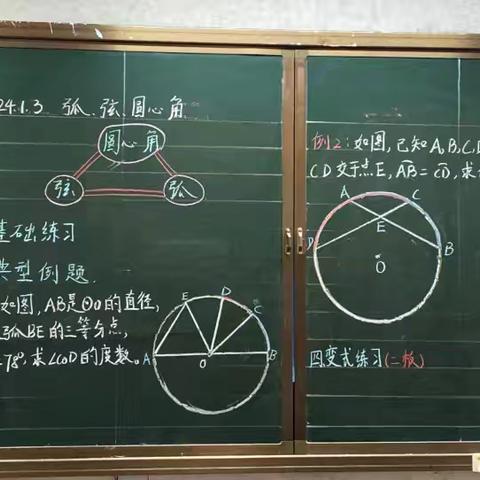 24.1.3 弧、弦、圆心角
圆心角
弦
弧
基础练习
典型例题.
如图,AB是⊙O的直径,
弧BE的三等分点,
78°,求∠COD的度数。
E
D
C
A
O
B
例2:如图,已知A,B,C,D
CD交于点E,AB=CD,求
A
C
E
D
B
O
四变式练习(二板)